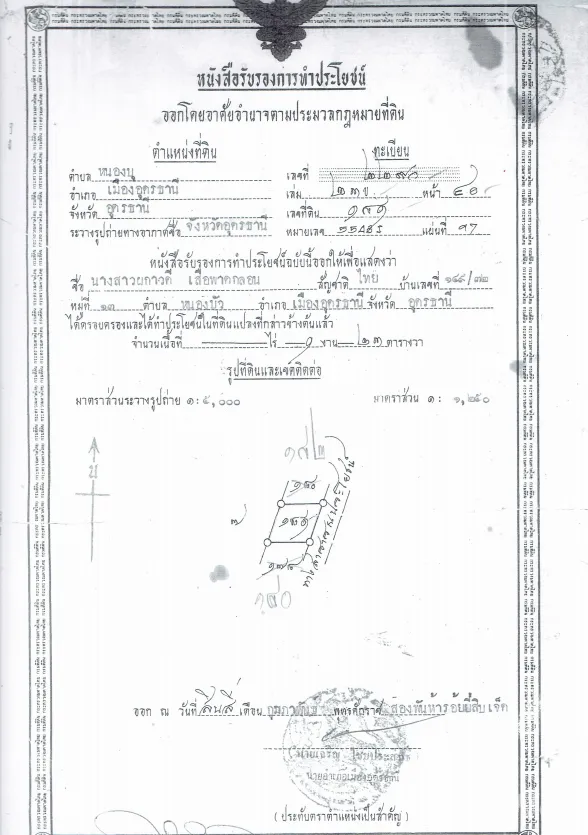 หนังสือรับรองการทำประโยชน์
ออกโดยอาศัยอำนาจตามประมวลกฎหมายที่ดิน
ตำแหน่งที่ดิน
ทะเบียน
ตำบล หนองบุ
เลขที่ ๒๒๗๐
อำเภอ เมืองอุดรธานี
เล่ม ๒๓ข. หน้า ๔๐
จังหวัด อุดรธานี
เลขที่ดิน ๑๘๑
ระวางรูปถ่ายทางอากาศชื่อ จังหวัดอุดรธานี
หมายเลข แผ่นที่ ๑๗
หนังสือรับรองการทำประโยชน์ฉบับนี้ออกให้เพื่อแสดงว่า
ชื่อ นางสาวยุภาวดี เสือพาดกลอน สัญชาติ ไทย บ้านเลขที่ ๑๔๙/๗๒
หมู่ที่ ๑๓ ตำบล หนองบัว อำเภอ เมืองอุดรธานี จังหวัด อุดรธานี
ได้ครอบครองและได้ทำประโยชน์ในที่ดินแปลงที่กล่าวข้างต้นแล้ว
จำนวนเนื้อที่ ไร่ ๑ งาน ๒๓ ตารางวา
รูปที่ดินและเขตติดต่อ
มาตราส่วนระวางรูปถ่าย ๑: ๕,๐๐๐
มาตราส่วน ๑: ๑,๒๕๐
น
ทางสาธารณประโยชน์
ออก ณ วันที่ สิบสี่ เดือน กุมภาพันธ์ พุทธศักราช สองพันห้าร้อยยี่สิบเจ็ด
นายอำเภอเมืองอุดรธานี
(ประทับตราตำแหน่งเป็นสำคัญ)